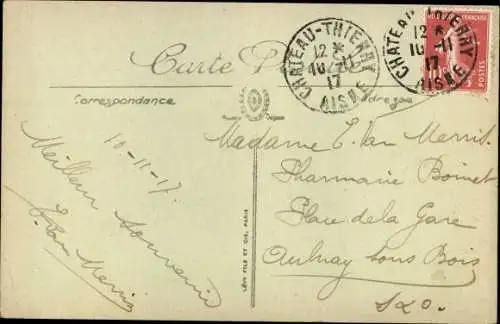 Carte P
Correspondance
Adresse
CHATEAU-THIERRY
12 *
10-11
17
AISNE
CHATEAU-THIERRY
12 *
10-11
17
AISNE
POSTES
10-11-17.
Meilleur souvenir
E. Van Merris
Madame E. Van Merris
Pharmacie Boinet
Place de la Gare
Aulnay sous Bois
S&O.
LÉVY FILS ET CIE, PARIS